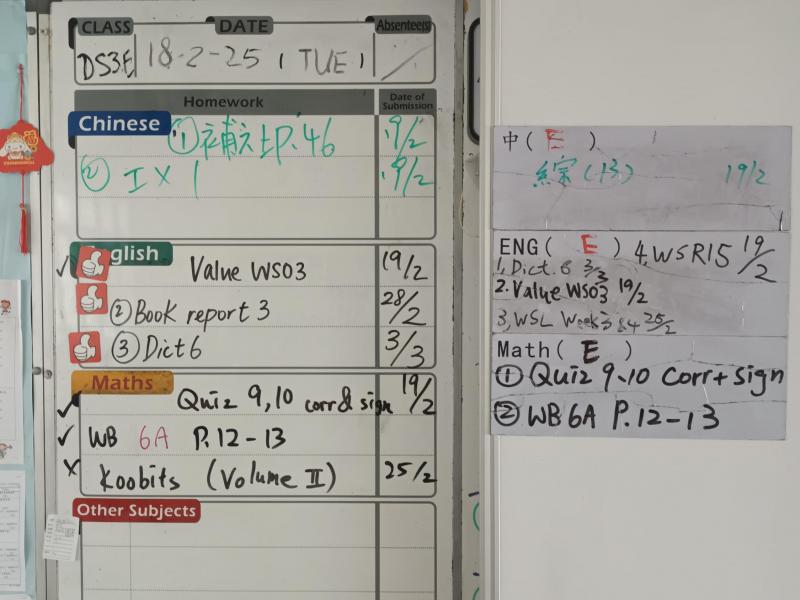 CLASS DATE Absentee(s)
DS3E 18-2-25 ( TUE ) /
Homework Date of Submission
Chinese ① 補充 P.46 19/2
② I X 1 19/2
English Value WS03 19/2
② Book report 3 28/2
③ Dict 6 3/3
Maths Quiz 9,10 corr & sign 19/2
WB 6A P.12-13
Koobits (Volume II) 25/2
Other Subjects
中( E )
(十三) 19/2
ENG( E ) 4. WSR15 19/2
1. Dict. 6 3/3
2. Value WS03 19/2
3. WSL Week 3 & 4 25/2
Math( E )
① Quiz 9、10 Corr + sign
② WB 6A P.12-13